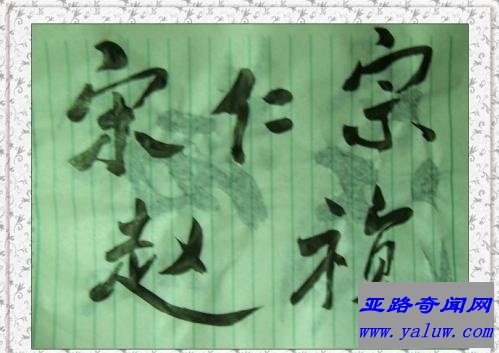 宋仁宗
赵祯
亚路奇闻网
www.yaluw.com